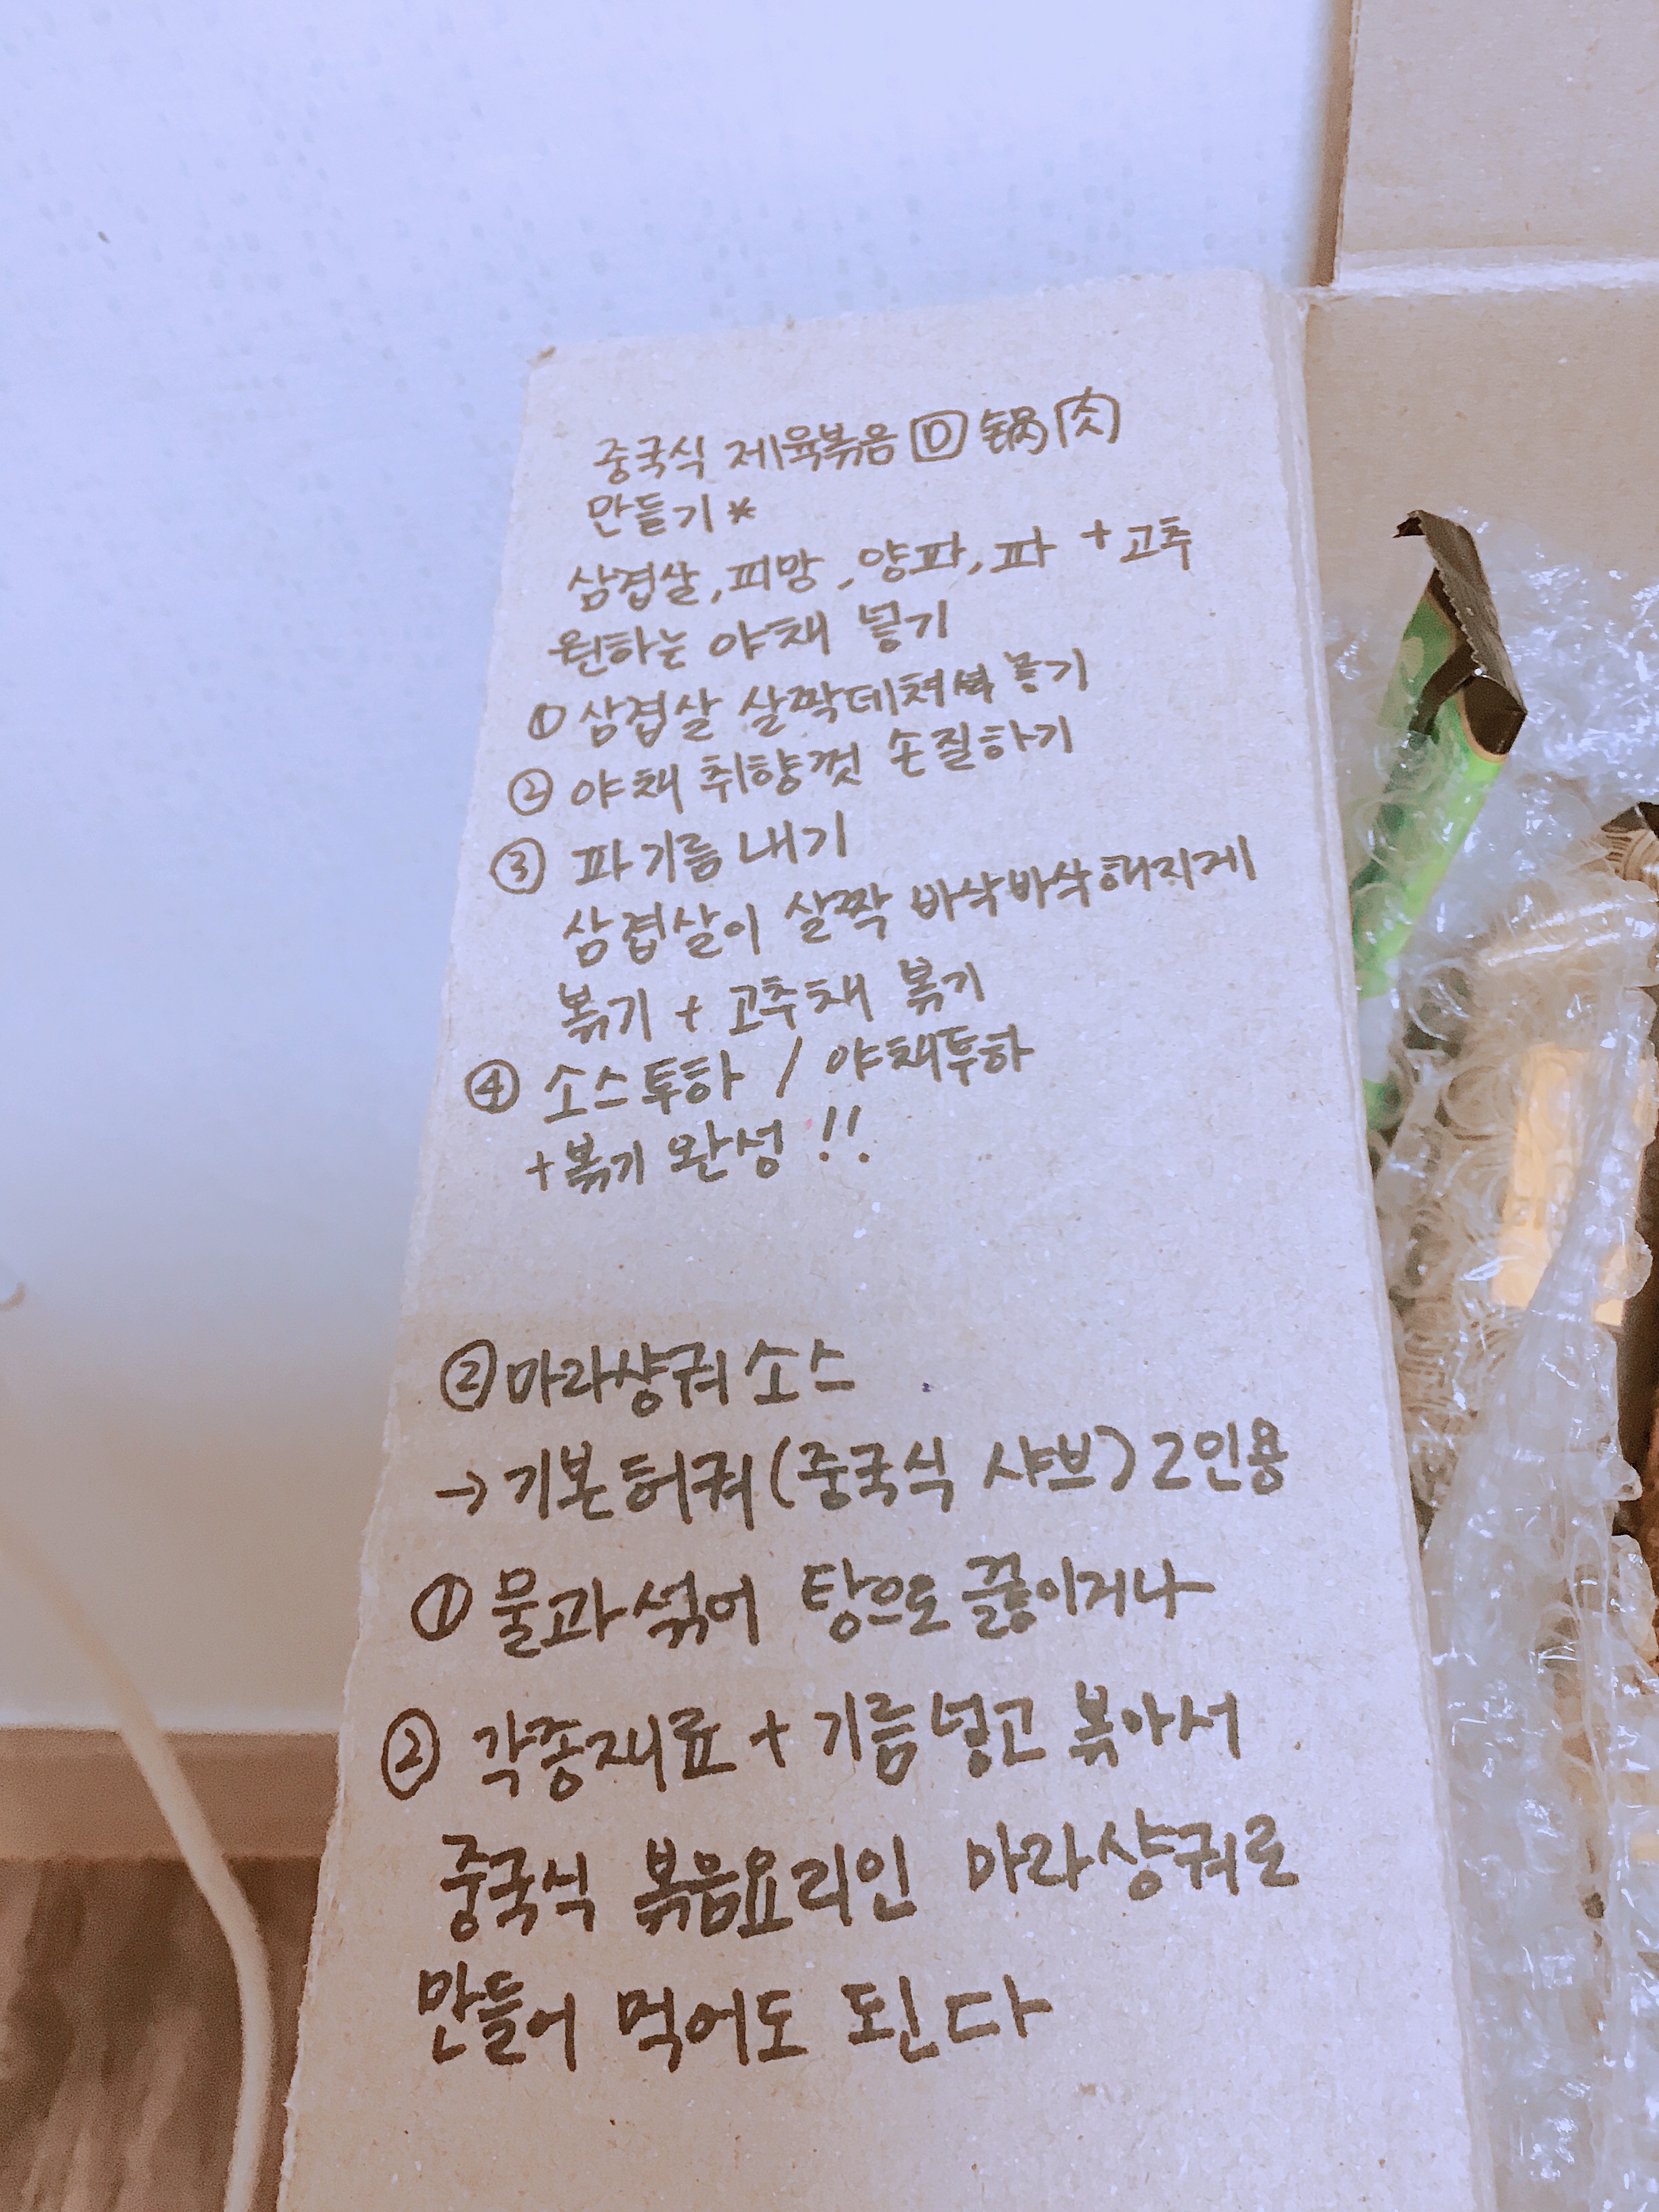 중국식 제육볶음 回锅肉
만들기*
삼겹살, 피망, 양파, 파 + 고추
원하는 야채 넣기
① 삼겹살 살짝데쳐
② 야채 취향껏 손질하기
③ 파기름 내기
삼겹살이 살짝 바삭바삭해지게
볶기 + 고추채 볶기
④ 소스투하 / 야채투하
+볶기 완성!!
② 마라샹궈 소스
→ 기본훠궈(중국식 샤브) 2인용
① 물과 섞어 탕으로 끓이거나
② 각종재료 + 기름넣고 볶아서
중국식 볶음요리인 마라샹궈로
만들어 먹어도 된다